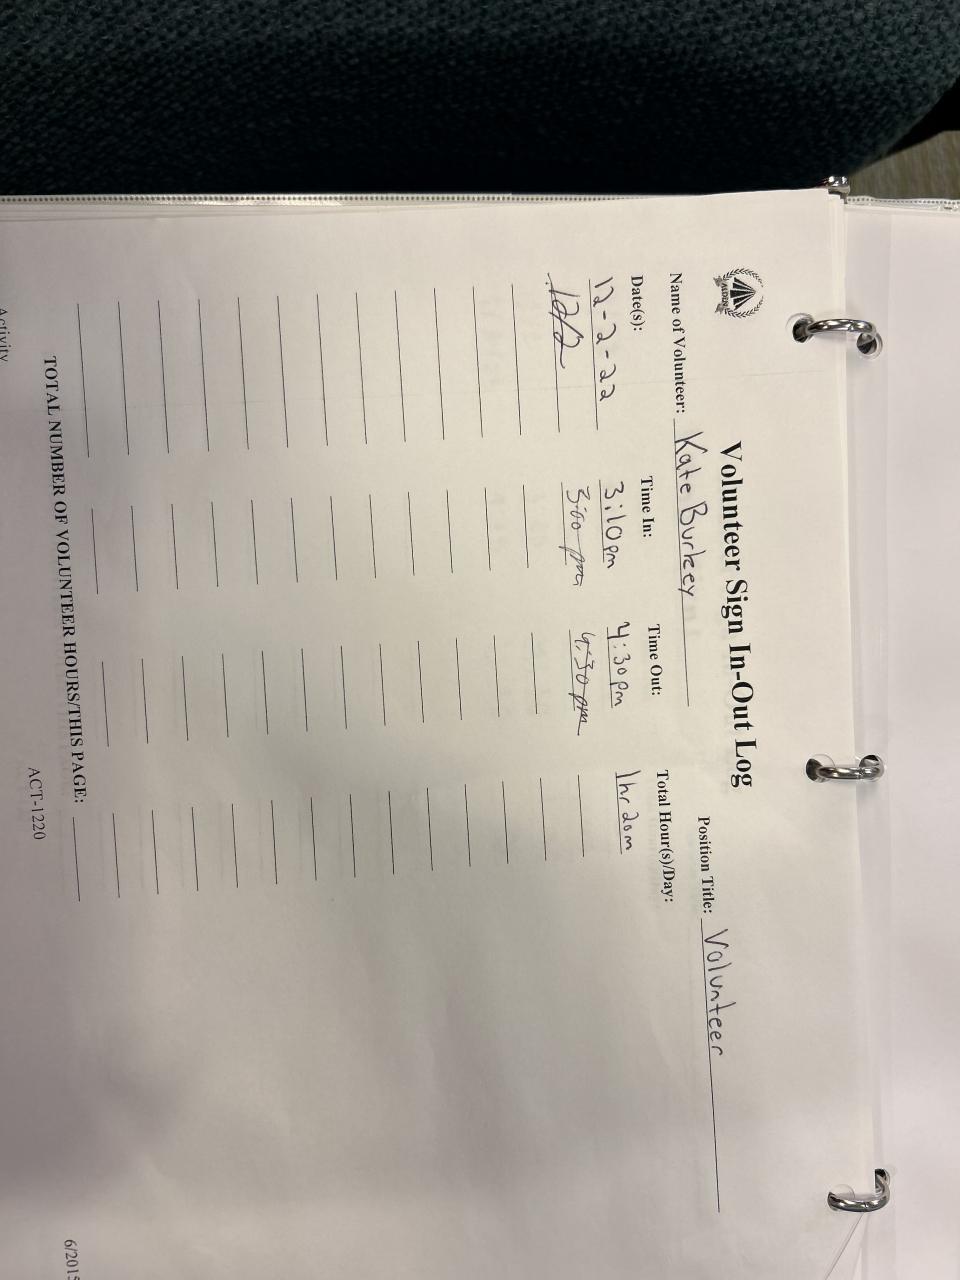 ALDEN
Volunteer Sign In-Out Log
Name of Volunteer: Kate Burkey Position Title: Volunteer
Date(s): Time In: Time Out: Total Hour(s)/Day:
12-2-22 3:10pm 4:30pm 1hr 20m
12/2 3:00 pm 4:30 pm
TOTAL NUMBER OF VOLUNTEER HOURS/THIS PAGE:
ACT-1220
Activity 6/2015